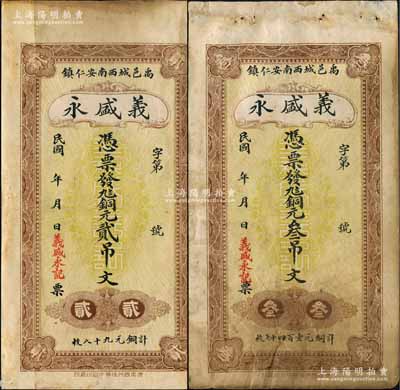 上海阳明拍卖
禹邑城西南安仁鎮
義盛永
字第 號
憑票發尨銅元貳吊文
民國 年 月 日 義盛永記 票
貳 貳
計銅元九十八枚
上海阳明拍卖
禹邑城西南安仁鎮
義盛永
字第 號
憑票發尨銅元叁吊文
民國 年 月 日 義盛永記 票
叁 叁
計銅元壹百四十七枚
上海阳明拍卖